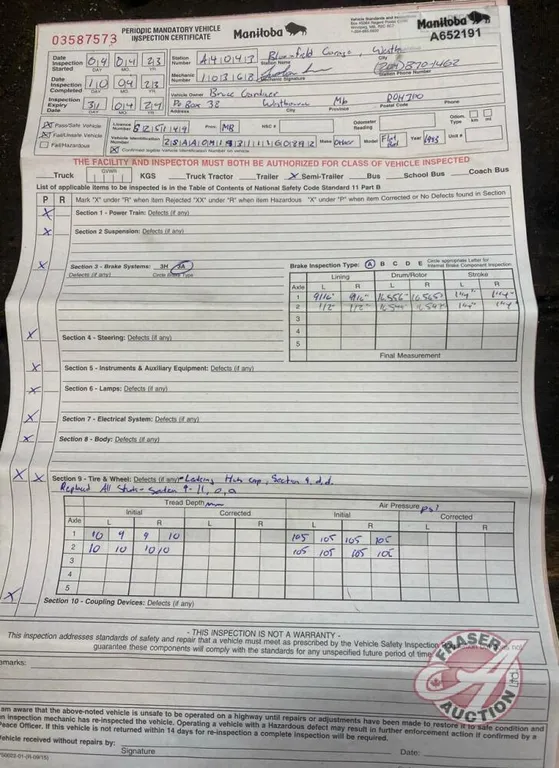 03587573
PERIODIC MANDATORY VEHICLE
INSPECTION CERTIFICATE
Manitoba
Vehicle Standards and Inspections
Manitoba
A652191
Date Inspection Started 04 04 23
DAY MO. YR.
Station Number A4041 Station Name
City
Date Inspection Completed 10 04 23
DAY MO. YR.
Mechanic Number 110368 Mechanic Signature (204) 870-1462
Station Phone Number
Inspection Expiry Date 31 04 24
DAY MO. YR.
Vehicle Owner Bruce Gardiner
Po Box 38 Mb
Address City Province Postal Code Phone
Pass/Safe Vehicle
Fail/Unsafe Vehicle
Fail/Hazardous
Licence Number Prov. MB NSC # Odometer Reading Odom. Type km mi
Vehicle Identification Number Make Other Model Flat Year 1983 Unit #
Confirmed eligible Vehicle Identification Number on vehicle
THE FACILITY AND INSPECTOR MUST BOTH BE AUTHORIZED FOR CLASS OF VEHICLE INSPECTED
Truck GVWR KGS Truck Tractor Trailer X Semi-Trailer Bus School Bus Coach Bus
List of applicable items to be inspected is in the Table of Contents of National Safety Code Standard 11 Part B
P R Mark "X" under "R" item when item Rejected "XX" under "R" when item Hazardous "X" under "P" when item Corrected or No Defects found in Section
X Section 1 - Power Train: Defects (if any)
X Section 2 Suspension: Defects (if any)
X Section 3 - Brake Systems: 3H 3A
Defects (if any) Circle Brake Type
Brake Inspection Type: A B C D E Circle appropriate Letter for Internal Brake Component Inspection
Lining Drum/Rotor Stroke
Axle L R L R L R
1 9/16" 9/16" 16.556" 16.565" 1 1/4" 1 1/4"
2 1/2" 1/2"
3
4
5
Final Measurement
X Section 4 - Steering: Defects (if any)
X Section 5 - Instruments & Auxiliary Equipment: Defects (if any)
X Section 6 - Lamps: Defects (if any)
X Section 7 - Electrical System: Defects (if any)
X Section 8 - Body: Defects (if any)
X X Section 9 - Tire & Wheel: Defects (if any) - Leaking Hub cap, Section 9, d.d.
Replaced All Studs - Section 9-11, a,a
Tread Depth mm Air Pressure psi
Initial Corrected Initial Corrected
Axle L R L R L R L R
1 10 9 9 10 105 105 105 105
2 10 10 10 10 105 105 105 105
3
4
5
X Section 10 - Coupling Devices: Defects (if any)
- THIS INSPECTION IS NOT A WARRANTY -
This inspection addresses standards of safety and repair that a vehicle must meet as prescribed by the Vehicle Safety Inspection not
guarantee these components will comply with the standards for any unspecified future period of time
marks:
FRASER
AUCTION Ltd.
am aware that the above-noted vehicle is unsafe to be operated on a highway until repairs or adjustments have been made to restore it to safe condition and
n inspection mechanic has re-inspected the vehicle. Operating a vehicle with a Hazardous defect may result in further enforcement action if confirmed by a
Peace Officer. If this vehicle is not returned within 14 days for re-inspection a complete inspection will be required.
ehicle received without repairs by:
Signature Date: